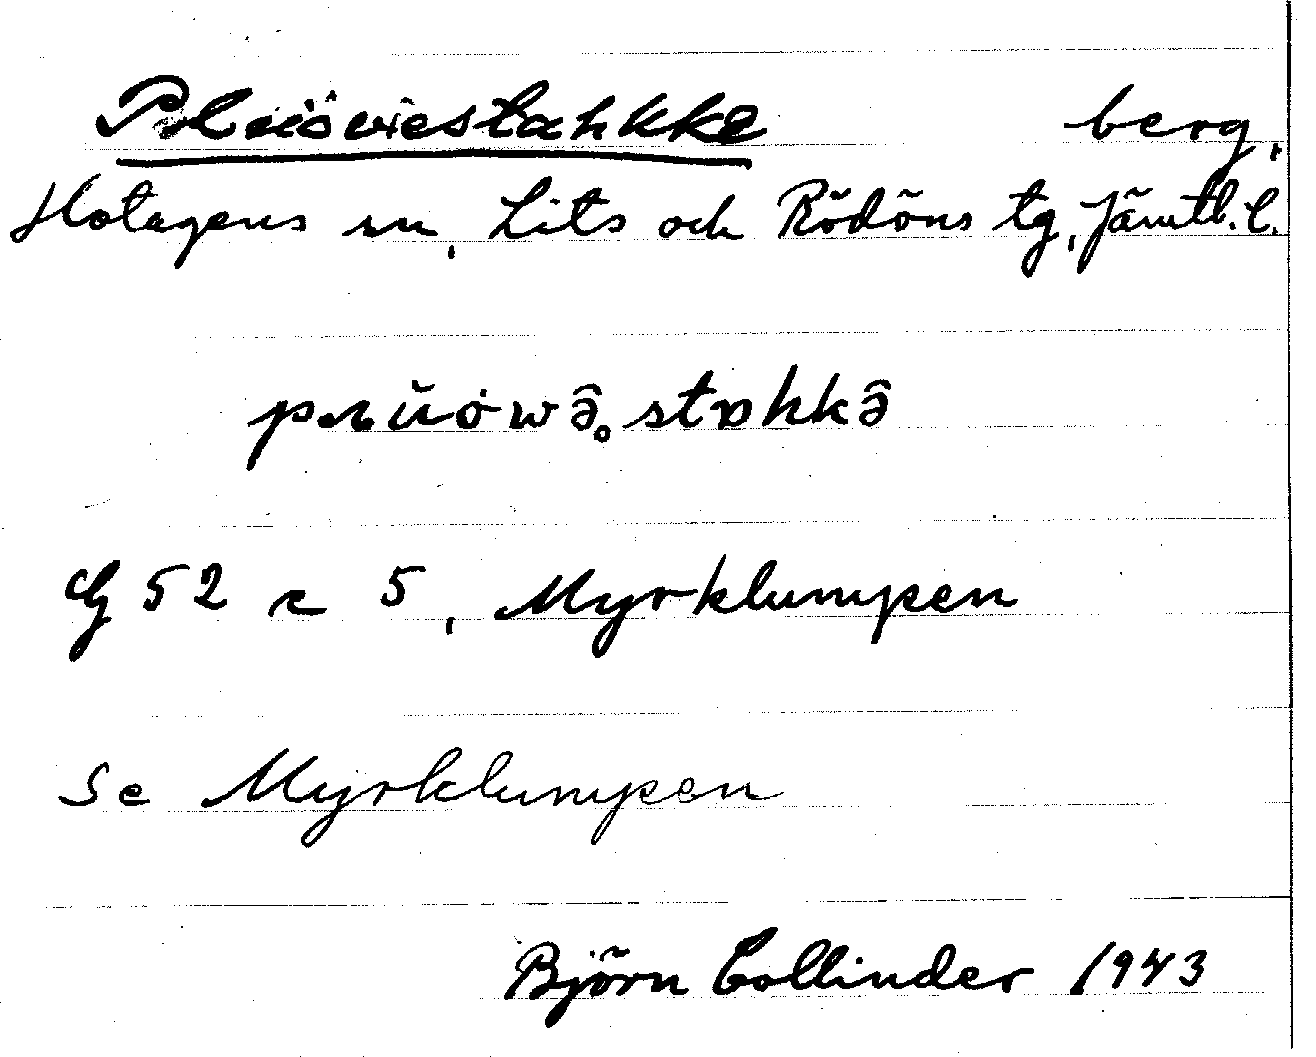 berg,
Hotagens sn, Lits och Rödöns tg, Jämtl. l.
G 52 c 5, Myrklumpen
Se Myrklumpen
Björn Collinder 1943